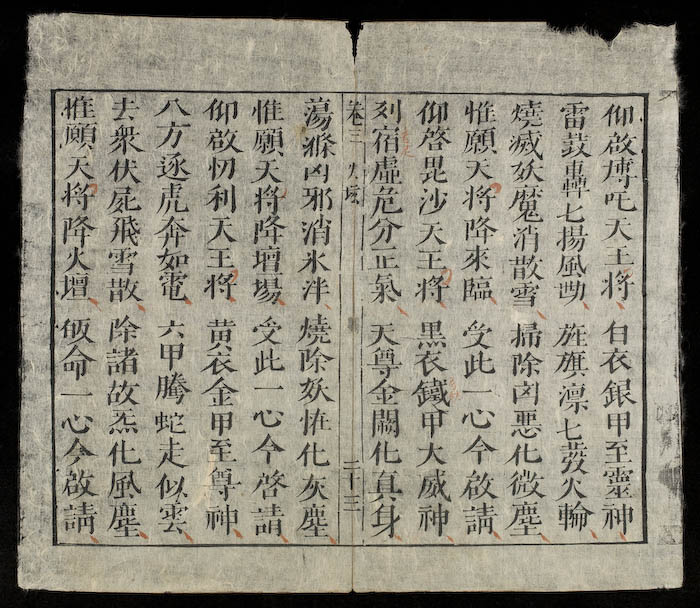 仰啟摶吒天王將 白衣銀甲至靈神
雷鼓轟七揚風 旌旗凛七發火輪
燒滅妖魔消散雪 掃除凶惡化微塵
惟願天將降來臨 受此一心今啟請
仰啓毘沙天王將 黒衣鐵甲大威神
列宿虛危分正氣 天尊金闕化真身
卷三 火坛 二十三
蕩滌凶邪消氷泮 燒除妖恠化灰塵
惟願天將降壇場 受此一心今啓請
仰啟忉利天王將 黃衣金甲至尊神
八方逐虎奔如電 六甲騰蛇走似雲
去衆伏屍飛雪散 除諸故炁化風塵
惟願天將降火壇 皈命一心今啟請